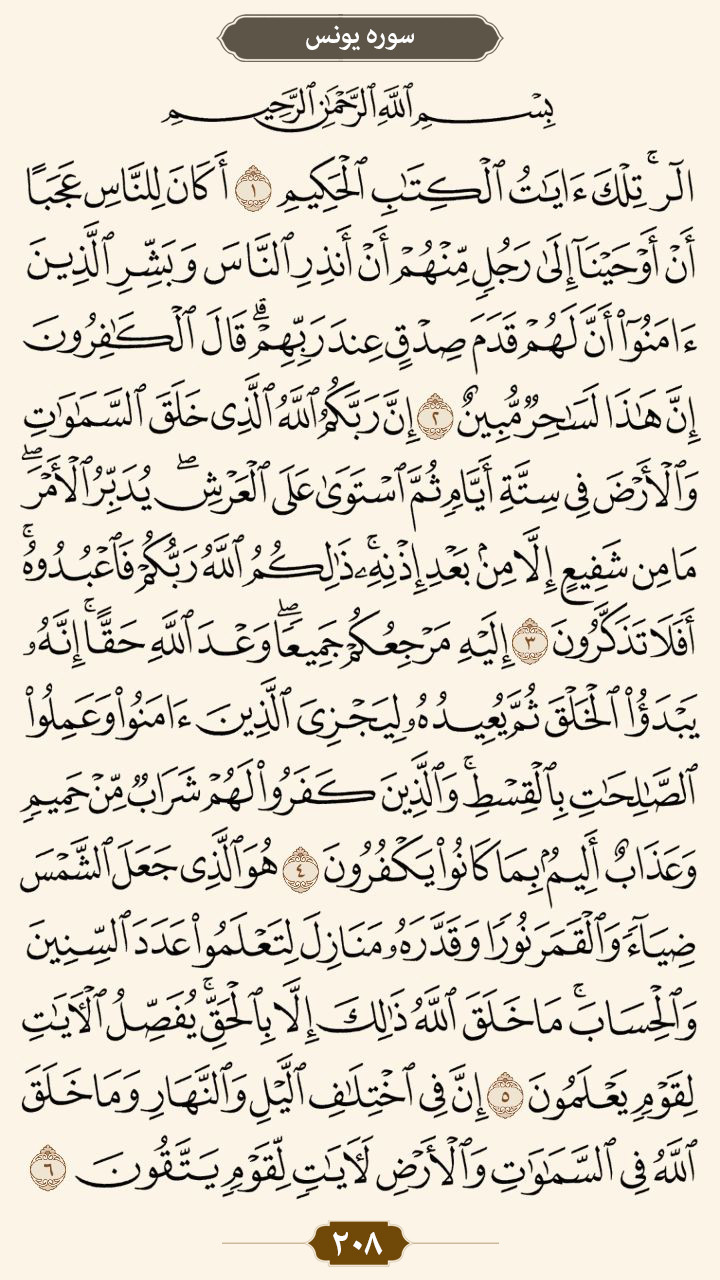 سوره یونس
بِسْمِ ٱللَّهِ ٱلرَّحْمَٰنِ ٱلرَّحِيمِ
الٓرۚ تِلْكَ ءَايَٰتُ ٱلْكِتَٰبِ ٱلْحَكِيمِ ١ أَكَانَ لِلنَّاسِ عَجَبًا
أَنْ أَوْحَيْنَآ إِلَىٰ رَجُلٍ مِّنْهُمْ أَنْ أَنذِرِ ٱلنَّاسَ وَبَشِّرِ ٱلَّذِينَ
ءَامَنُوٓا۟ أَنَّ لَهُمْ قَدَمَ صِدْقٍ عِندَ رَبِّهِمْۗ قَالَ ٱلْكَٰفِرُونَ
إِنَّ هَٰذَا لَسَٰحِرٌ مُّبِينٌ ٢ إِنَّ رَبَّكُمُ ٱللَّهُ ٱلَّذِى خَلَقَ ٱلسَّمَٰوَٰتِ
وَٱلْأَرْضَ فِى سِتَّةِ أَيَّامٍ ثُمَّ ٱسْتَوَىٰ عَلَى ٱلْعَرْشِۖ يُدَبِّرُ ٱلْأَمْرَۖ
مَا مِن شَفِيعٍ إِلَّا مِنۢ بَعْدِ إِذْنِهِۦۚ ذَٰلِكُمُ ٱللَّهُ رَبُّكُمْ فَٱعْبُدُوهُۚ
أَفَلَا تَذَكَّرُونَ ٣ إِلَيْهِ مَرْجِعُكُمْ جَمِيعًاۖ وَعْدَ ٱللَّهِ حَقًّاۚ إِنَّهُۥ
يَبْدَؤُا۟ ٱلْخَلْقَ ثُمَّ يُعِيدُهُۥ لِيَجْزِىَ ٱلَّذِينَ ءَامَنُوا۟ وَعَمِلُوا۟
ٱلصَّٰلِحَٰتِ بِٱلْقِسْطِۚ وَٱلَّذِينَ كَفَرُوا۟ لَهُمْ شَرَابٌ مِّنْ حَمِيمٍ
وَعَذَابٌ أَلِيمٌۢ بِمَا كَانُوا۟ يَكْفُرُونَ ٤ هُوَ ٱلَّذِى جَعَلَ ٱلشَّمْسَ
ضِيَآءً وَٱلْقَمَرَ نُورًا وَقَدَّرَهُۥ مَنَازِلَ لِتَعْلَمُوا۟ عَدَدَ ٱلسِّنِينَ
وَٱلْحِسَابَۚ مَا خَلَقَ ٱللَّهُ ذَٰلِكَ إِلَّا بِٱلْحَقِّۚ يُفَصِّلُ ٱلْءَايَٰتِ
لِقَوْمٍ يَعْلَمُونَ ٥ إِنَّ فِى ٱخْتِلَٰفِ ٱلَّيْلِ وَٱلنَّهَارِ وَمَا خَلَقَ
ٱللَّهُ فِى ٱلسَّمَٰوَٰتِ وَٱلْأَرْضِ لَءَايَٰتٍ لِّقَوْمٍ يَتَّقُونَ ٦
٢٠٨